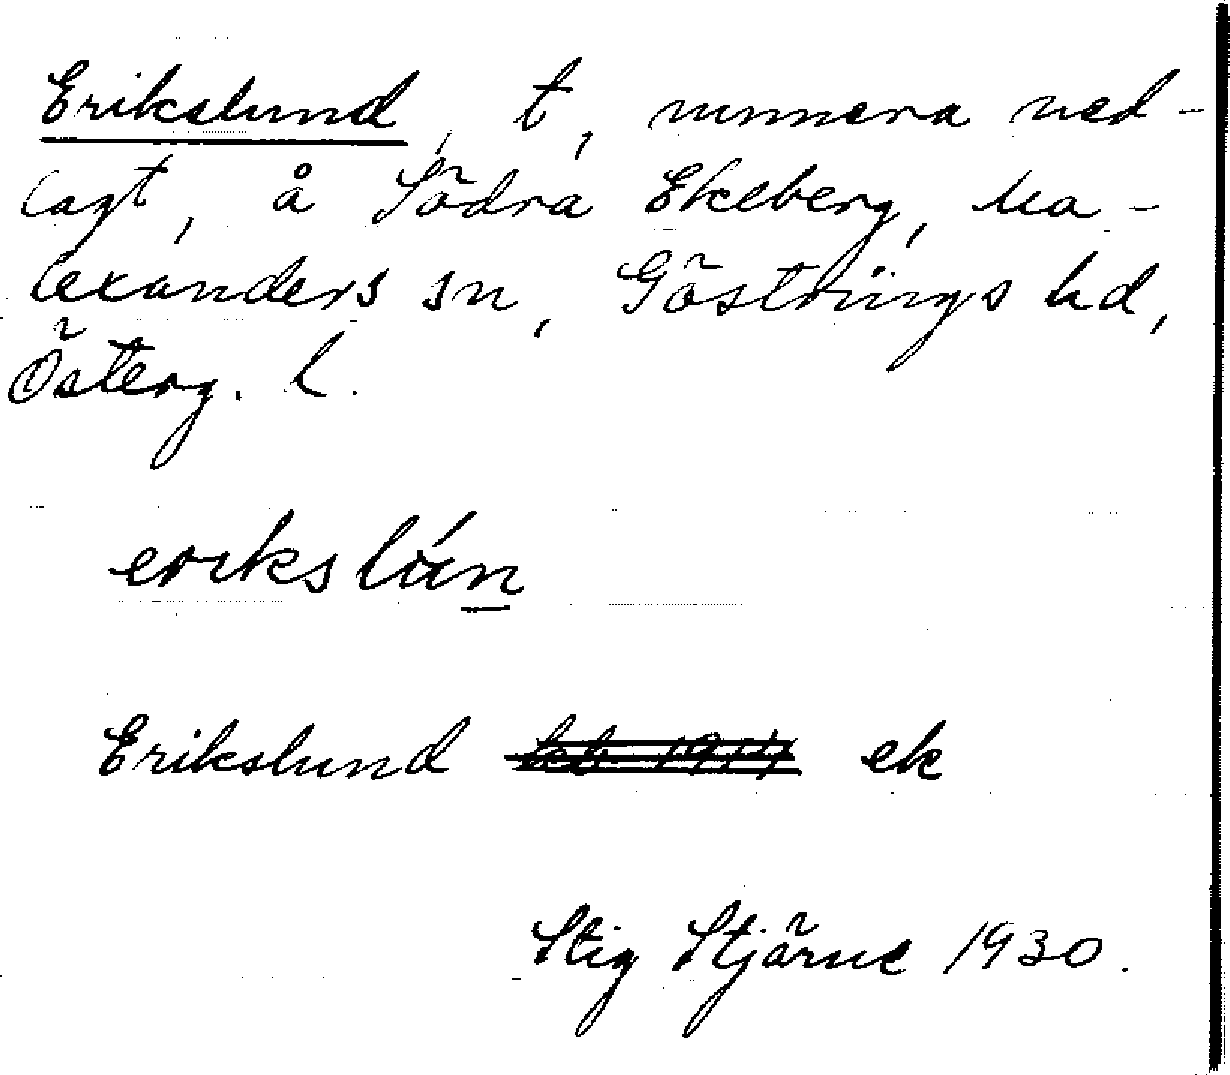 Erikslund, t, numera ned-
lagt, å Södra Ekeberg, Va-
lexanders sn, Göstrings hd,
Österg. l.
erikslún
Erikslund ek
Stig Stjärne 1930.